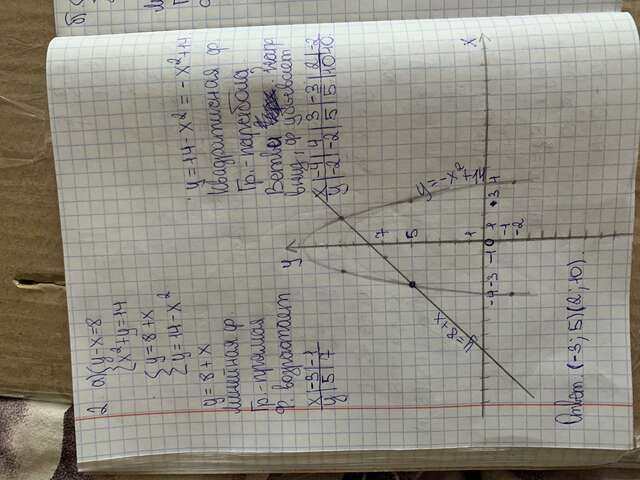 2 а) { y-x=8
{ x²+y=14
{ y=8+x
{ y=14-x²
y=8+x
Линейная ф
Гр.-прямая
ф. возрастает
x|-3|-1
y|5|7
y=14-x²=-x²+14
Квадратичная ф
Гр.-парабола
Ветви напр
вниз, ф убывает
x|-4|4|3|-3|2|-2
y|-2|-2|5|5|10|10
y
x
7
5
1
-4 -3 -1 0 1 3 4
-1
-2
y=-x²+14
x+8=y
Ответ (-3; 5)(2; 10)